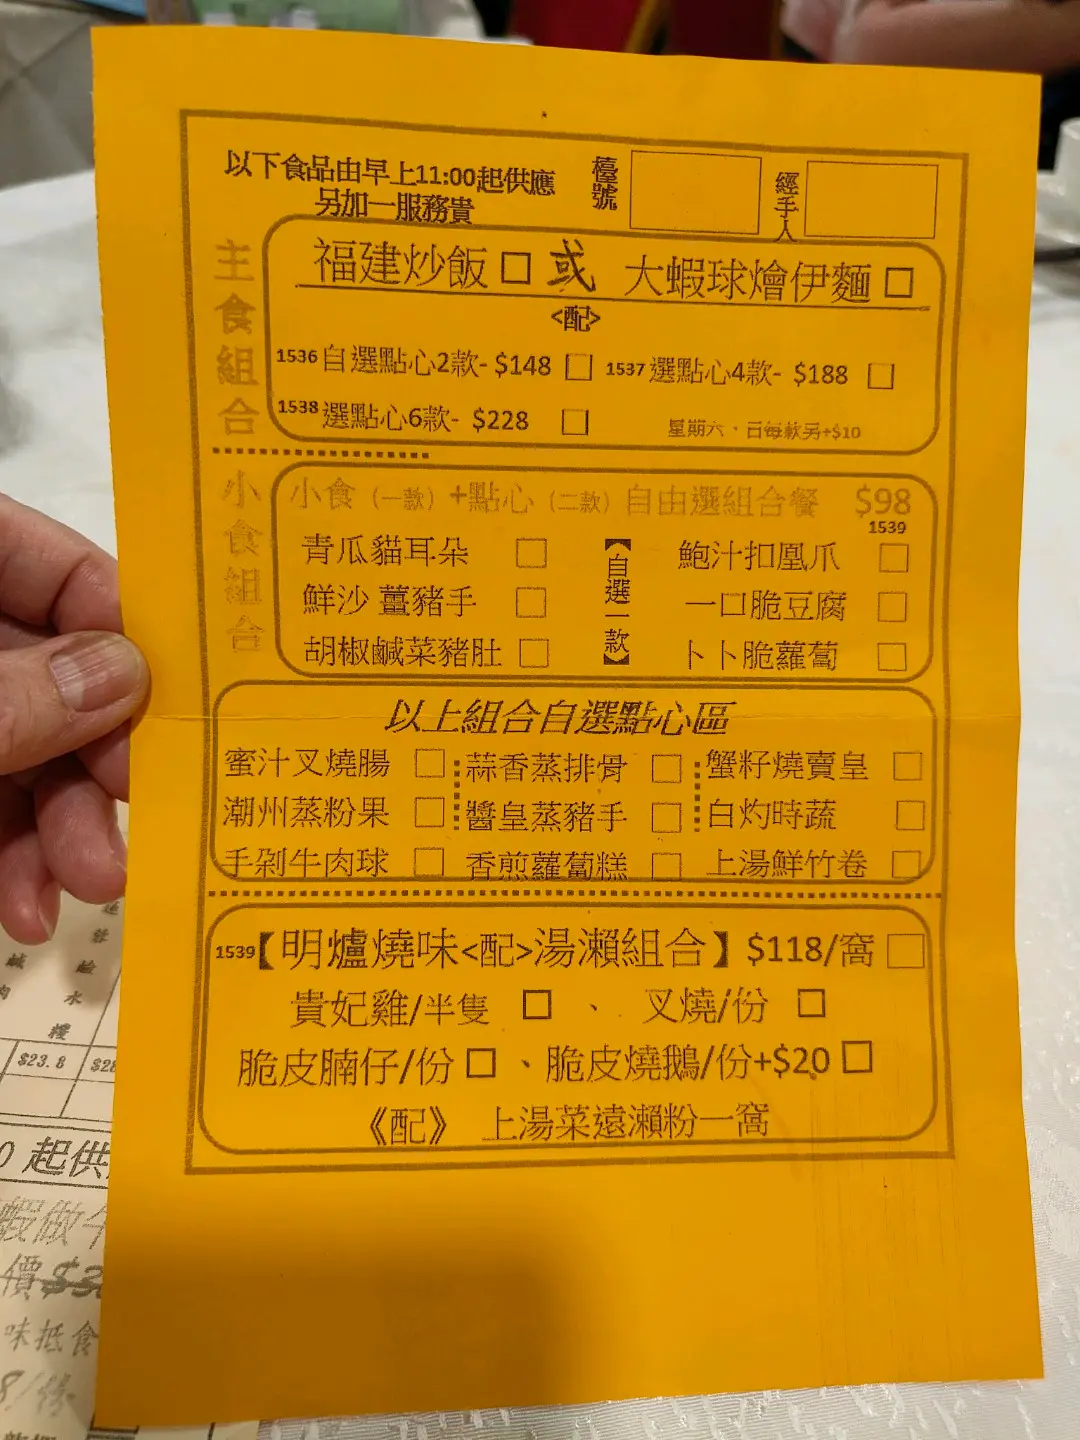 以下食品由早上11:00起供應
另加一服務費
檯號
經手人
主食組合
福建炒飯□或 大蝦球燴伊麵□
<配>
1536自選點心2款- $148 □ 1537選點心4款- $188 □
1538選點心6款- $228 □ 星期六、日每款另+$10
小食組合
小食（一款）+點心（二款）自由選組合餐 $98
1539
青瓜貓耳朵 □ 鮑汁扣鳳爪 □
鮮沙薑豬手 □ 一口脆豆腐 □
胡椒鹹菜豬肚 □ 卜卜脆蘿蔔 □
【自選一款】
以上組合自選點心區
蜜汁叉燒腸 □ 蒜香蒸排骨 □ 蟹籽燒賣皇 □
潮州蒸粉果 □ 醬皇蒸豬手 □ 白灼時蔬 □
手剁牛肉球 □ 香煎蘿蔔糕 □ 上湯鮮竹卷 □
1539【明爐燒味<配>湯瀨組合】$118/窩 □
貴妃雞/半隻 □ 、 叉燒/份 □
脆皮腩仔/份 □ 、脆皮燒鵝/份+$20 □
《配》 上湯菜遠瀨粉一窩
鹹
水
糭
$23.8
0 起供
蝦做
價
味抵食
8/份